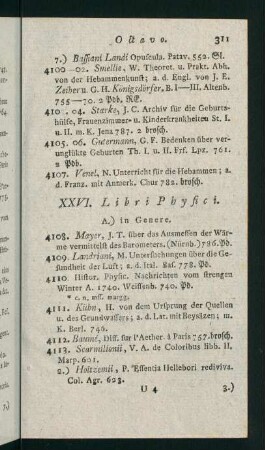 Octavo. 311
7.) Bassiani Landi Opuscula. Patav. 552.
4100–02. Smellie, W. Theoret. u. Prakt. Abh.
von der Hebammenkunst; a. d. Engl. von J. E.
Zeiher u. G. H. Königsdörfer. B. I—III. Altenb.
755—70. 2 Pbb. RE.
4103. 04. Starke, J. C. Archiv für die Geburts-
hülfe, Frauenzimmer- u. Kinderkrankheiten St. I.
u. II. m. K. Jena 787. 2 brosch.
4105. 06. Gutermann, G. F. Bedenken über ver-
unglükte Geburten Th. I. u. II. Frf. Lpz. 761.
2 Pbb.
4107. Venel, N. Unterricht für die Hebammen; a.
d. Franz. mit Anmerk. Chur 782. brosch.
XXVI. Libri Physici.
A.) in Genere.
4108. Mayer, J. T. über das Ausmessen der Wär-
me vermittelst des Barometers. (Nürnb.) 786. Pb.
4109. Landriani, M. Untersuchungen über die Ge-
sundheit der Luft; a. d. Ital. Bas. 778. Pb.
4110. Histor. Physic. Nachrichten vom strengen
Winter A. 1740. Weissenb. 740. Pb.
* c. n. mss. margg.
4111. Kühn, H. von dem Ursprung der Quellen
u. des Grundwassers; a. d. Lat. mit Beysäzen; m.
K. Berl. 746.
4112. Baumé, Diss. sur l'Aether. à Paris 757. brosch.
4113. Scarmilionii, V. A. de Coloribus libb. II.
Marp. 601.
2.) Hoitzemii, P. Essentia Hellebori rediviva.
Col. Agr. 623.
U 4 3.)